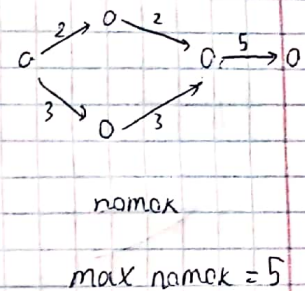 2 2 5
3 3
поток
max поток = 5